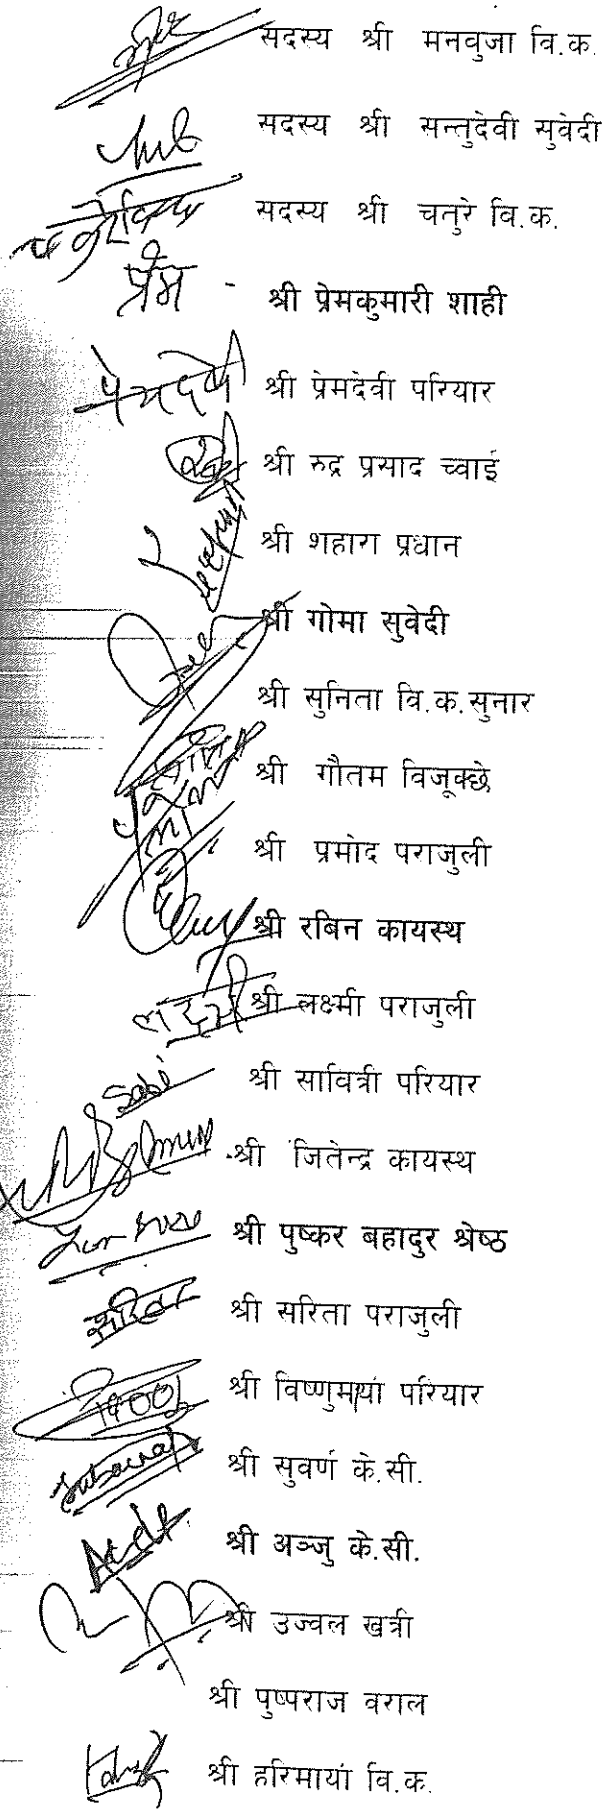 सदस्य श्री मनवुजा वि.क.
सदस्य श्री सन्तुदेवी सुवेदी
सदस्य श्री चतुरे वि.क.
प्रेम - श्री प्रेमकुमारी शाही
श्री प्रेमदेवी परियार
श्री रुद्र प्रसाद च्वाई
श्री शहारा प्रधान
श्री गोमा सुवेदी
श्री सुनिता वि.क.सुनार
श्री गौतम विजूक्छे
श्री प्रमोद पराजुली
श्री रबिन कायस्थ
लक्ष्मी श्री लक्ष्मी पराजुली
Sabi श्री सावित्री परियार
श्री जितेन्द्र कायस्थ
श्री पुष्कर बहादुर श्रेष्ठ
सरिता श्री सरिता पराजुली
श्री विष्णुमाया परियार
श्री सुवर्ण के.सी.
श्री अञ्जु के.सी.
श्री उज्वल खत्री
श्री पुष्पराज वराल
श्री हरिमाया वि.क.